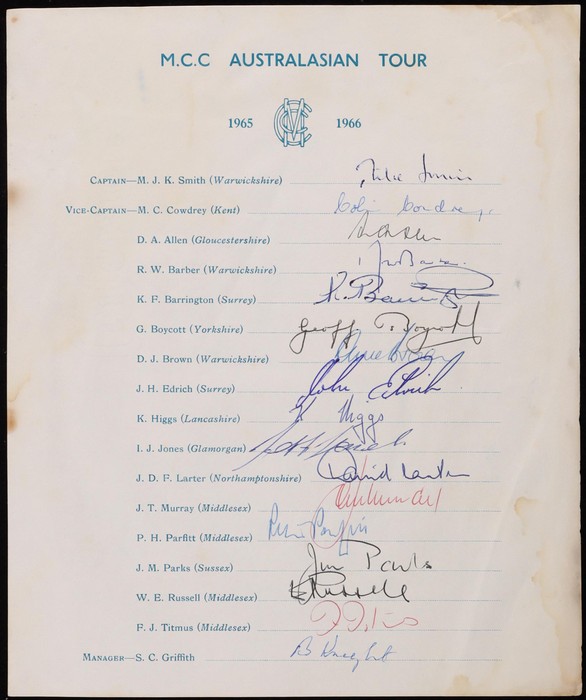 M.C.C AUSTRALASIAN TOUR
1965 MCC 1966
CAPTAIN—M. J. K. Smith (Warwickshire) Mike Smith
VICE-CAPTAIN—M. C. Cowdrey (Kent) Colin Cowdrey
D. A. Allen (Gloucestershire) D A Allen
R. W. Barber (Warwickshire)
K. F. Barrington (Surrey) K. Barrington
G. Boycott (Yorkshire) Geoff. Boycott
D. J. Brown (Warwickshire) David Brown
J. H. Edrich (Surrey) John Edrich
K. Higgs (Lancashire) K Higgs
I. J. Jones (Glamorgan) Jeff Jones
J. D. F. Larter (Northamptonshire) David Larter
J. T. Murray (Middlesex)
P. H. Parfitt (Middlesex) Peter Parfitt
J. M. Parks (Sussex) Jim Parks
W. E. Russell (Middlesex) Russell
F. J. Titmus (Middlesex) F J Titmus
MANAGER—S. C. Griffith B Knight